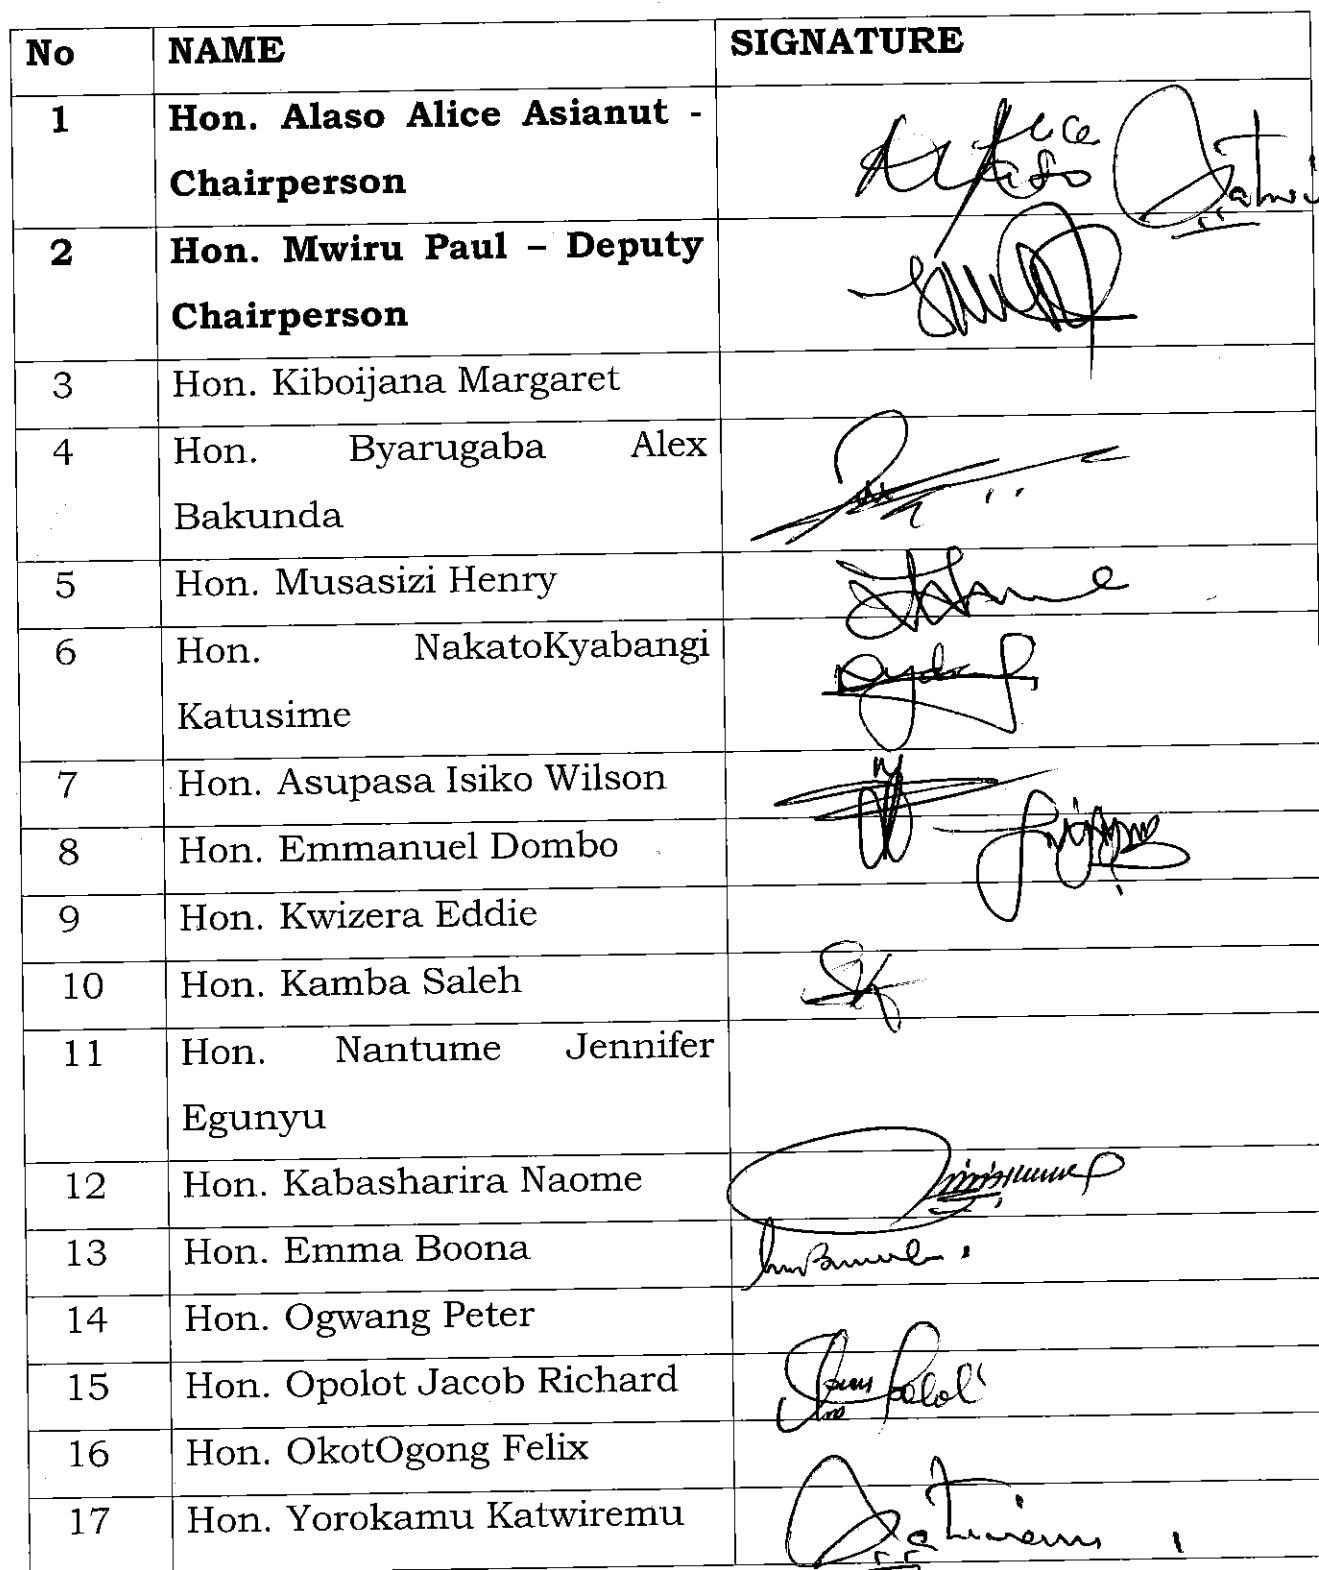 No NAME SIGNATURE
1 Hon. Alaso Alice Asianut -
Chairperson
2 Hon. Mwiru Paul – Deputy
Chairperson
3 Hon. Kiboijana Margaret
4 Hon. Byarugaba Alex
Bakunda
5 Hon. Musasizi Henry
6 Hon. NakatoKyabangi
Katusime
7 Hon. Asupasa Isiko Wilson
8 Hon. Emmanuel Dombo
9 Hon. Kwizera Eddie
10 Hon. Kamba Saleh
11 Hon. Nantume Jennifer
Egunyu
12 Hon. Kabasharira Naome
13 Hon. Emma Boona
14 Hon. Ogwang Peter
15 Hon. Opolot Jacob Richard
16 Hon. OkotOgong Felix
17 Hon. Yorokamu Katwiremu